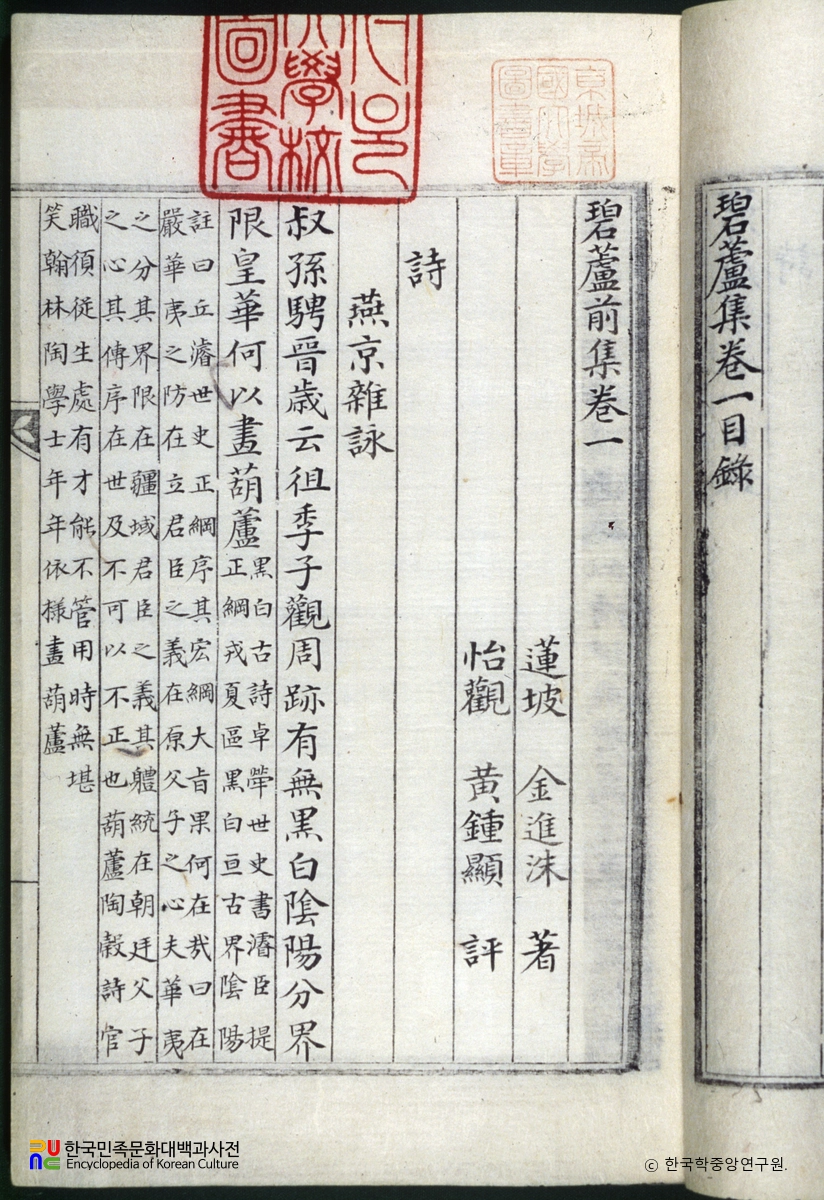 碧蘆集卷一目錄
碧蘆前集卷一
蓮坡 金進洙 著
怡觀 黃鍾顯 評
詩
燕京雜詠
叔孫騁晉歲云徂季子觀周跡有無黑白陰陽分界
限皇華何以畫葫蘆
黑白古詩卓犖世史書濬臣提
正綱戎夏區黑白亘古界陰陽
註曰丘濬世史正綱序其宏綱大旨果何在哉曰在
嚴華夷之防在立君臣之義在原父子之心夫華夷
之分其界限在疆域君臣之義其軆統在朝廷父子
之心其傳序在世及不可以不正也葫蘆陶穀詩官
職須從生處有才能不管用時無堪
笑翰林陶學士年年依樣畫葫蘆
京城帝
國大學
圖書章
大學校
圖書
한국민족문화대백과사전
Encyclopedia of Korean Culture
ⓒ 한국학중앙연구원.